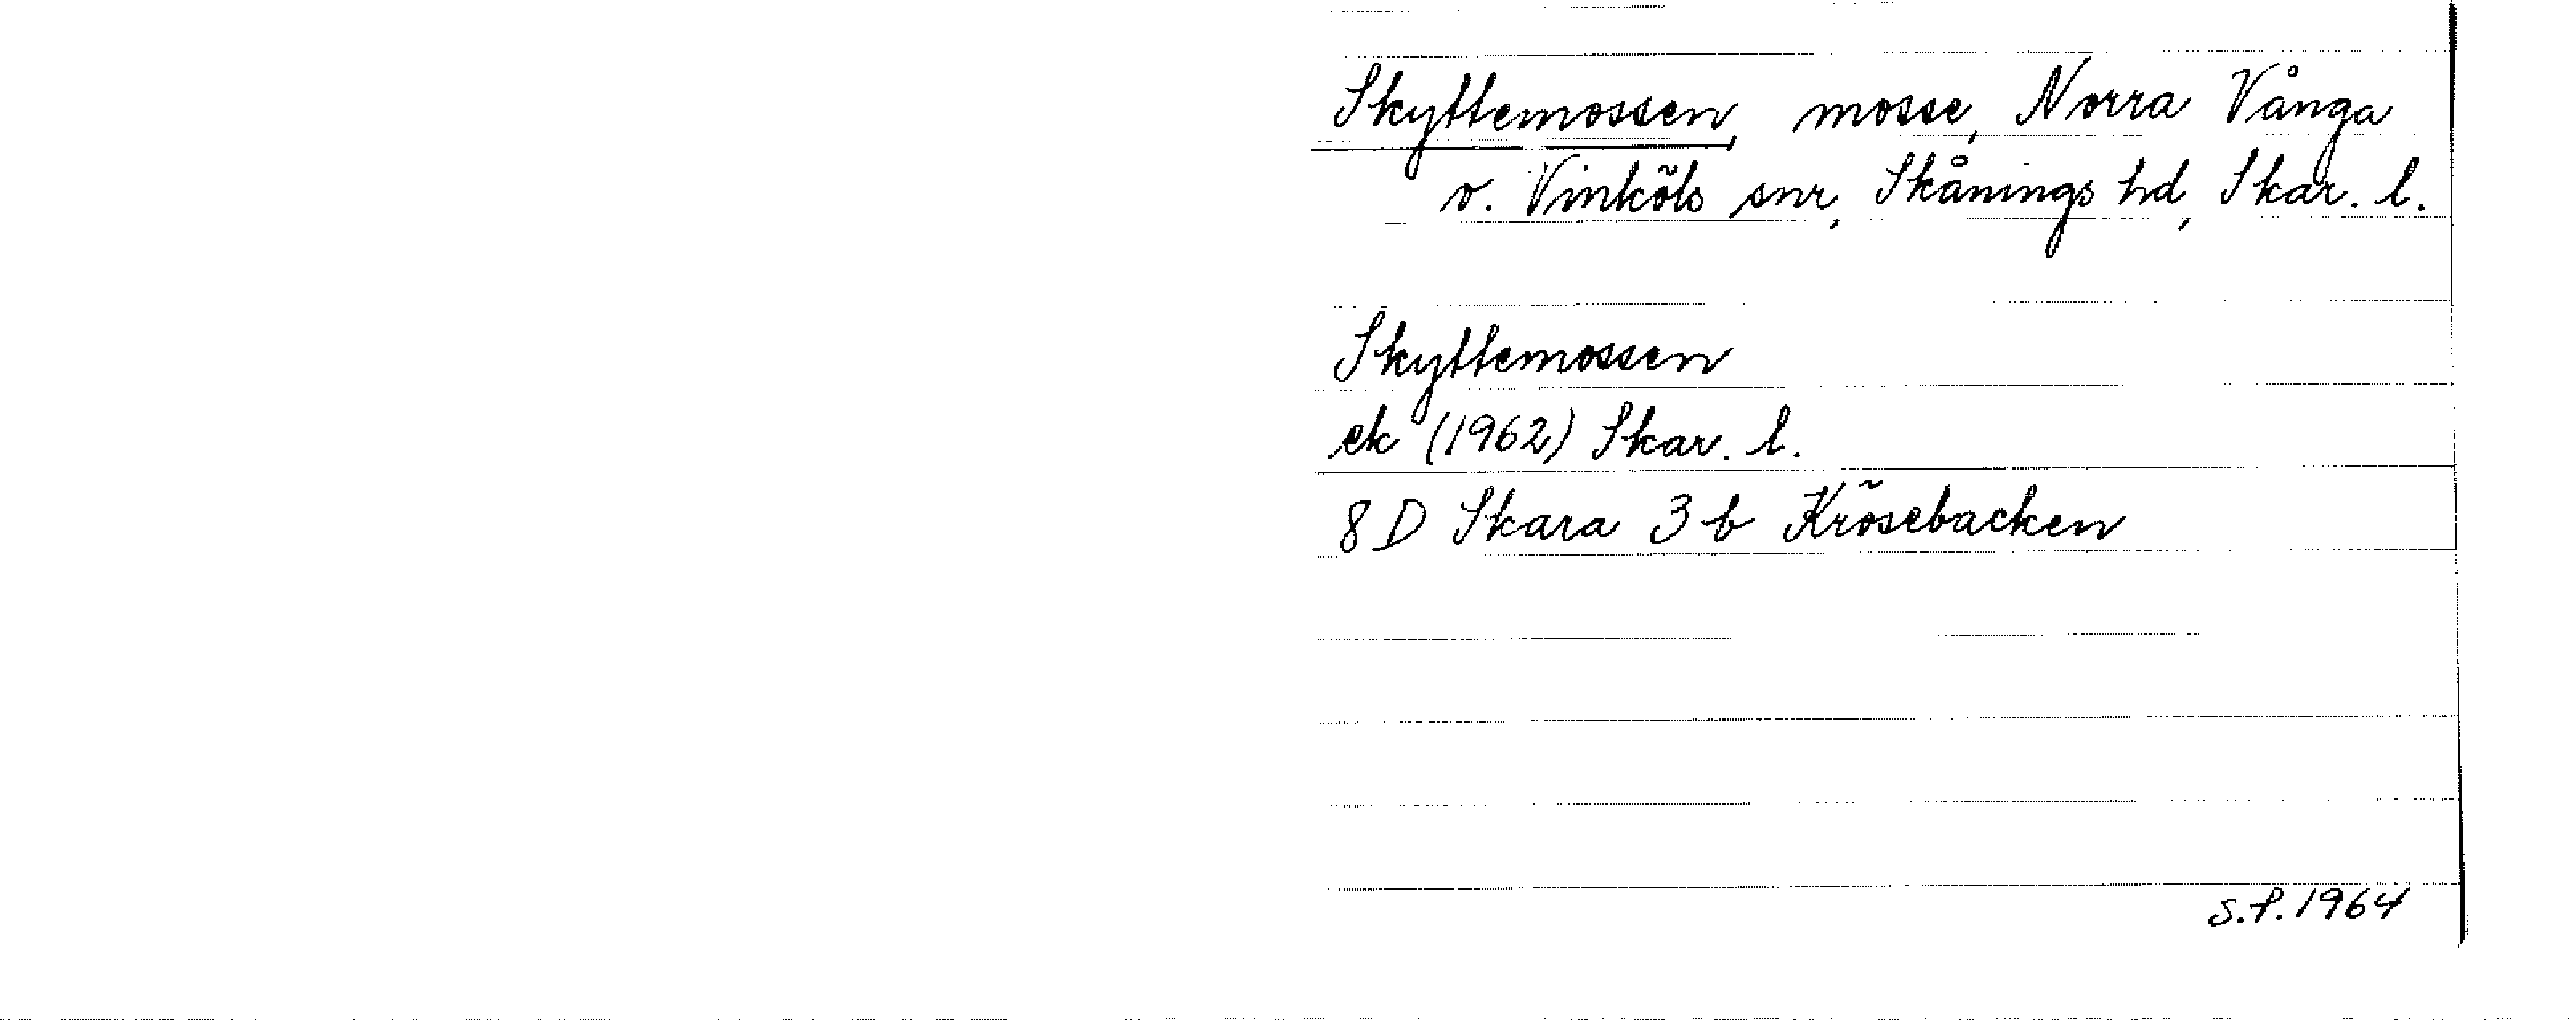 Skyttemossen, mosse, Norra Vånga
o. Vinköls snr, Skånings hd, Skar. l.
Skyttemossen
ek (1962) Skar. l.
8 D Skara 3 b Krösebacken
S.P. 1964